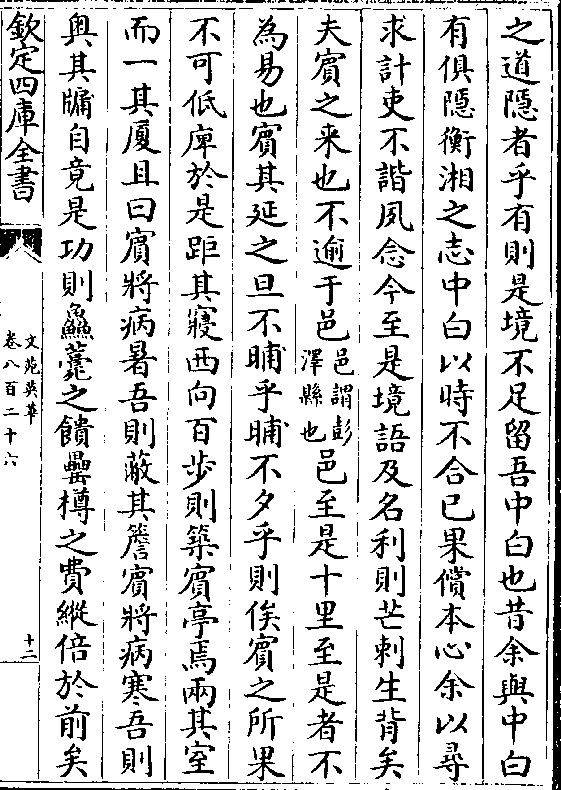 之道隱者乎有則是境不足留吾中白也昔余與中白
有俱隱衡湘之志中白以時不合已果償本心余以尋
求計吏不諧夙念今至是境語及名利則芒刺生背矣
夫賓之来也不逾于邑邑謂彭澤縣也邑至是十里至是者不
為易也賓其延之旦不晡乎晡不夕乎則俟賓之所果
不可低庳於是距其寢西向百步則築賓亭焉兩其室
而一其廈且曰賓將病暑吾則蔽其簷賓將病寒吾則
奥其牖自竟是功則鱻薧之饋罍樽之費縱倍於前矣
欽定四庫全書
文苑英華
卷八百二十六
十二